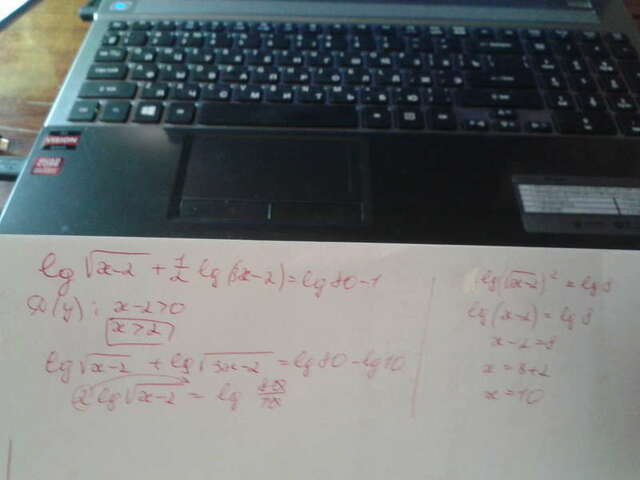 VISION
lg √x-2 + 1/2 lg(3x-2) = lg 80 - 1
D(y): x-2>0
x>2
lg √x-2 + lg √3x-2 = lg 80 - lg 10
2 lg √x-2 = lg 80/10
lg(√x-2)² = lg 8
lg(x-2) = lg 8
x-2=8
x=8+2
x=10